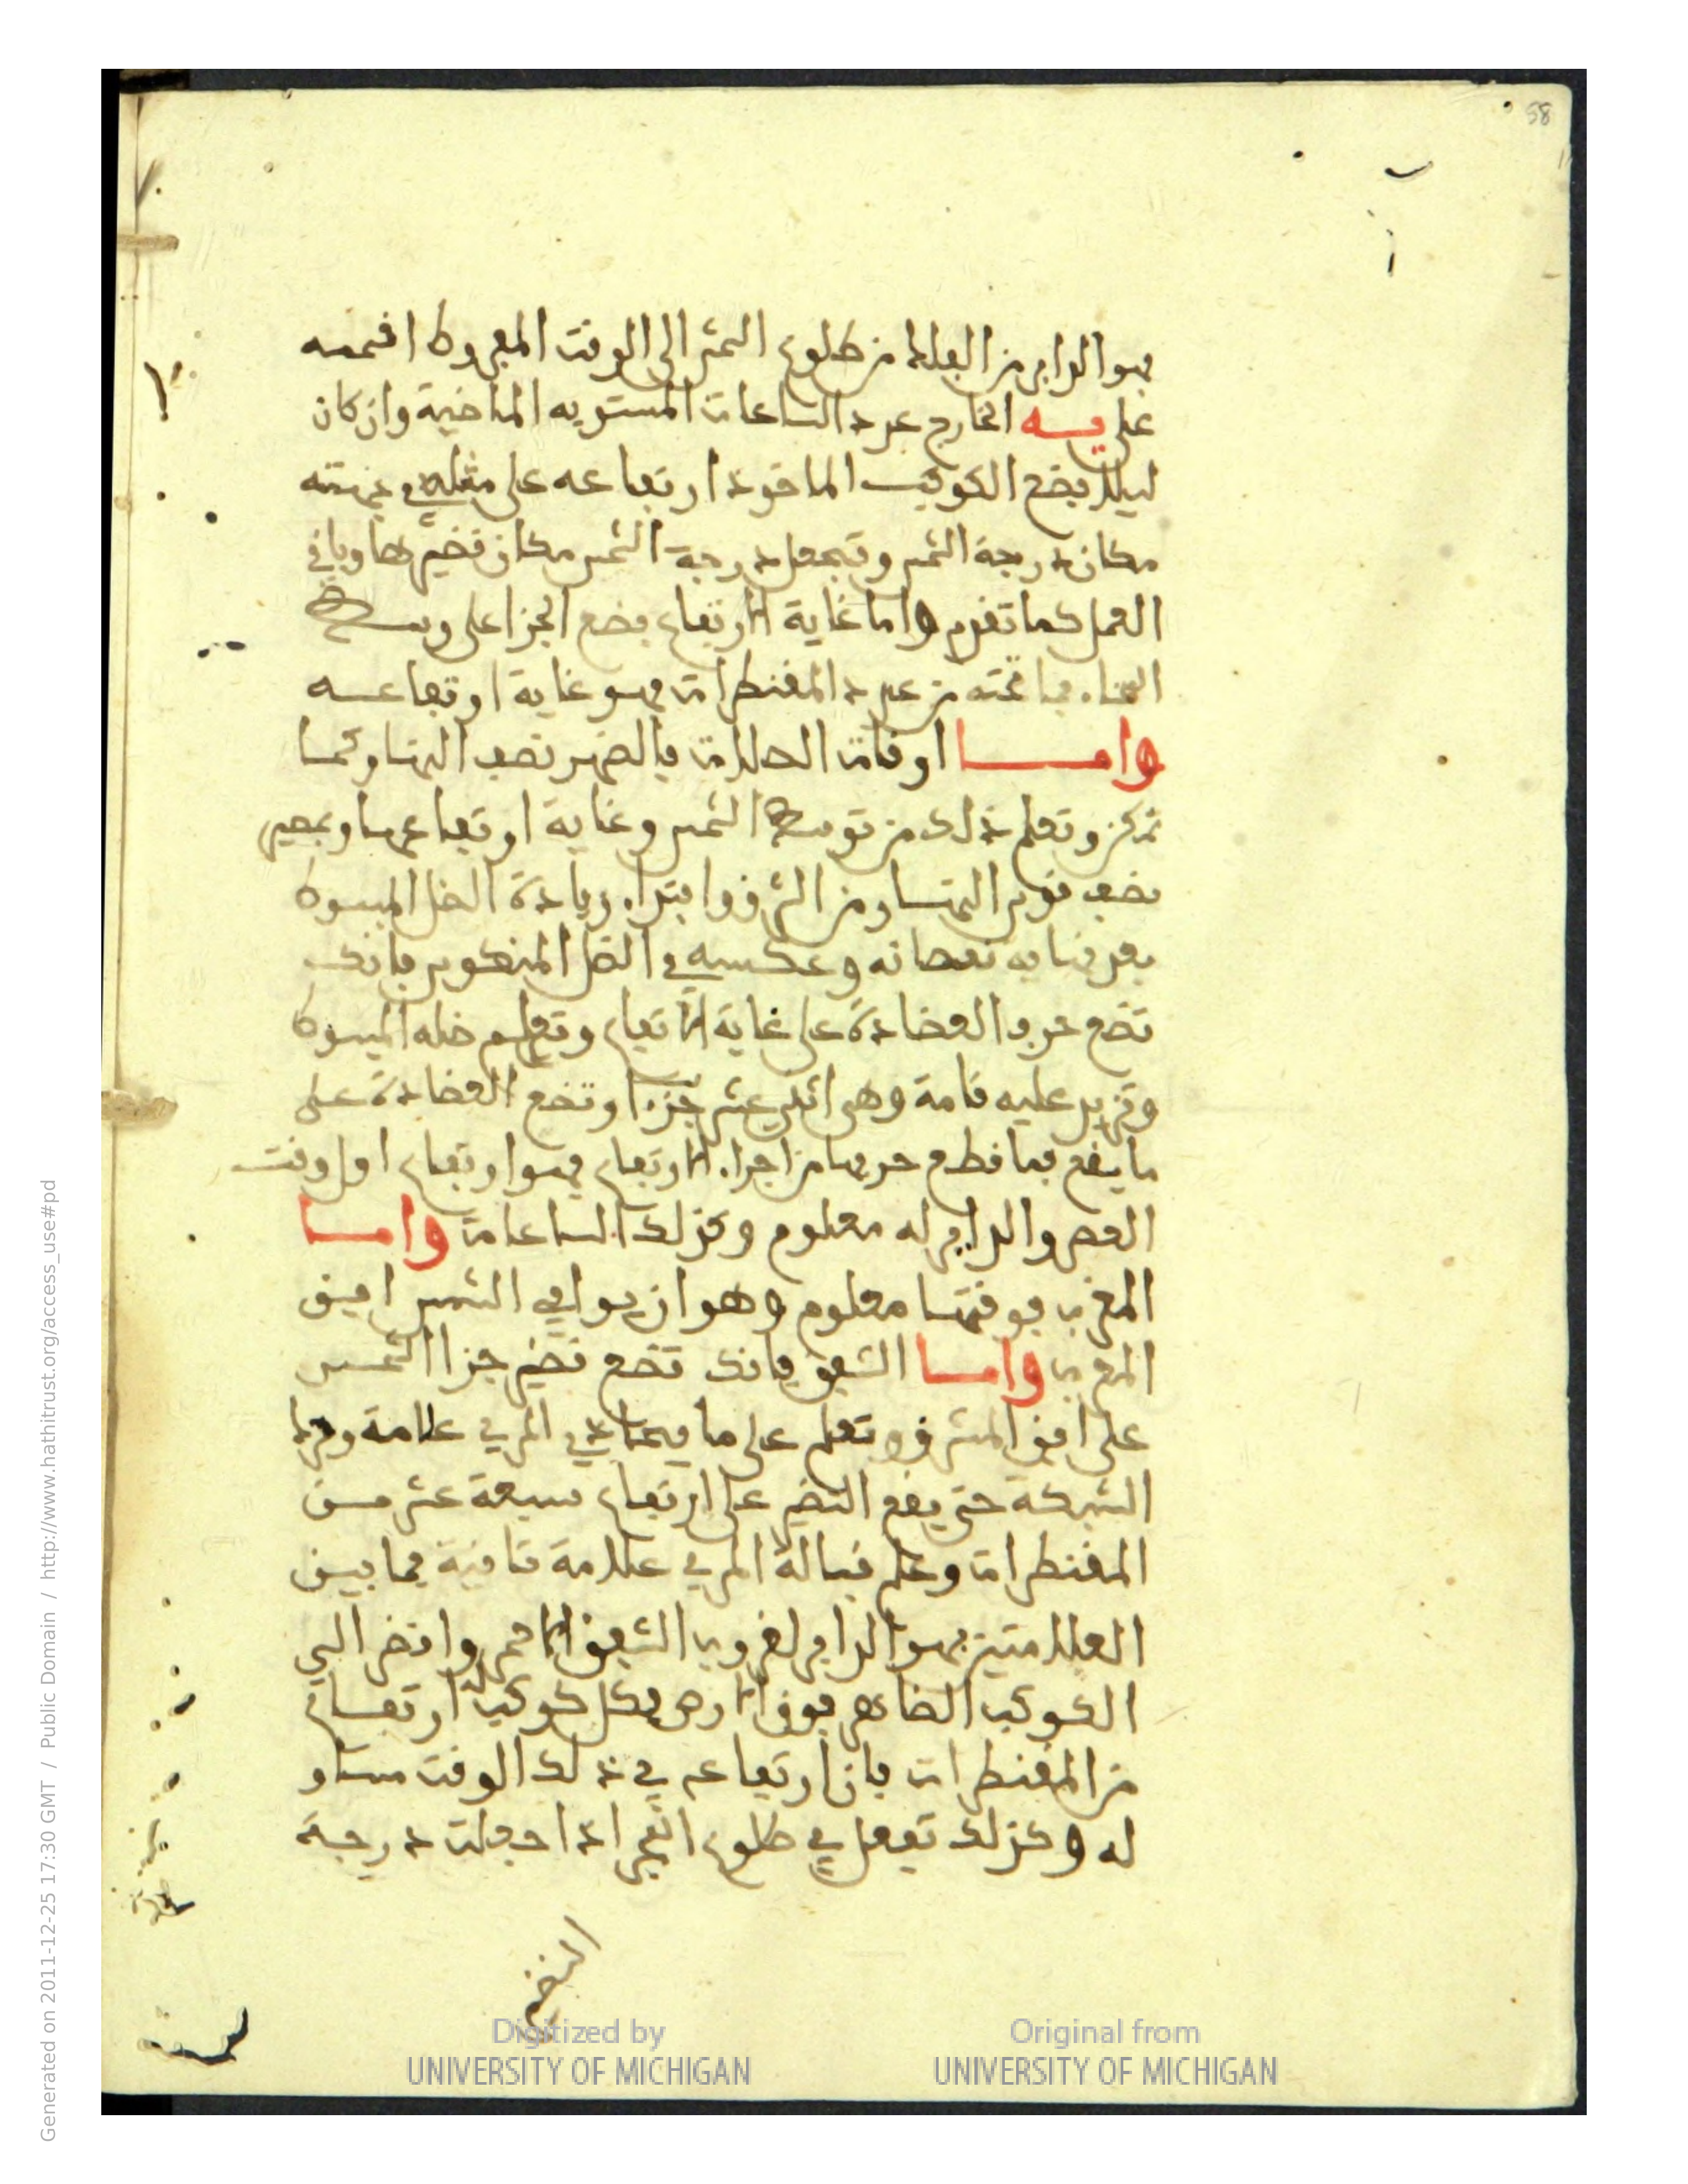 58
فهو الداير من الفلك من طلوع الشمس الى الوقت المفروض اقسمه
على يه الخارج عدد الساعات المستويه الماضية وان كان
ليلا فضع الكوكب الماخوذ ارتفاعه على مثله في جهته
مكان درجة الشمس وتجعل درجة الشمس مكان نضيرها وباقي
العمل كما تقدم واما غاية الارتفاع فضع الجزا على وسط
السماء فما تحته من عدد المقنطرات فهو غاية ارتفاعه
واما اوقات الصلاة فالضهر نصف النهار وكما
تركز وتعلم ذلك من توسط الشمس وغاية ارتفاعها وبمضي
نصف قوس النهار من الشرق وابتداء زيادة الضل المبسوط
بعد تناهيه نقصانه وعكسه في الضل المنكوس فانك
تضع حرف العضادة على غاية الارتفاع وتعلم ضله المبسوط
وتزيد عليه قامة وهى اثنى عشر جزءا وتضع العضادة على
ما يقع فما قطع حرفها من اجزاء الارتفاع فهو ارتفاع اول وقت
العصر والداير له معلوم وكذلك الساعات واما
المغرب فوقتها معلوم وهو ان يوافي الشمس افق
المغرب واما الشفق فانك تضع نضير جزا الشمس
على افق المشرق وتعلم على ما يحاذي المري علامة وتدير
الشبكة حتى يقع النضير على ارتفاع سبعة عشر من
المقنطرات وعلم قبالة المري علامة ثانية فما بين
العلامتين فهو الداير لغروب الشفق الاحمر وانضر الى
الكوكب الضاهر فوق الارض فكل كوكب ارتفاع
من المقنطرات فان ارتفاعه في ذلك الوقت مساو
له وكذلك تفعل في طلوع الفجر اذا جعلت درجة
النضير
Generated on 2011-12-25 17:30 GMT / Public Domain / http://www.hathitrust.org/access_use#pd
Digitized by
UNIVERSITY OF MICHIGAN
Original from
UNIVERSITY OF MICHIGAN